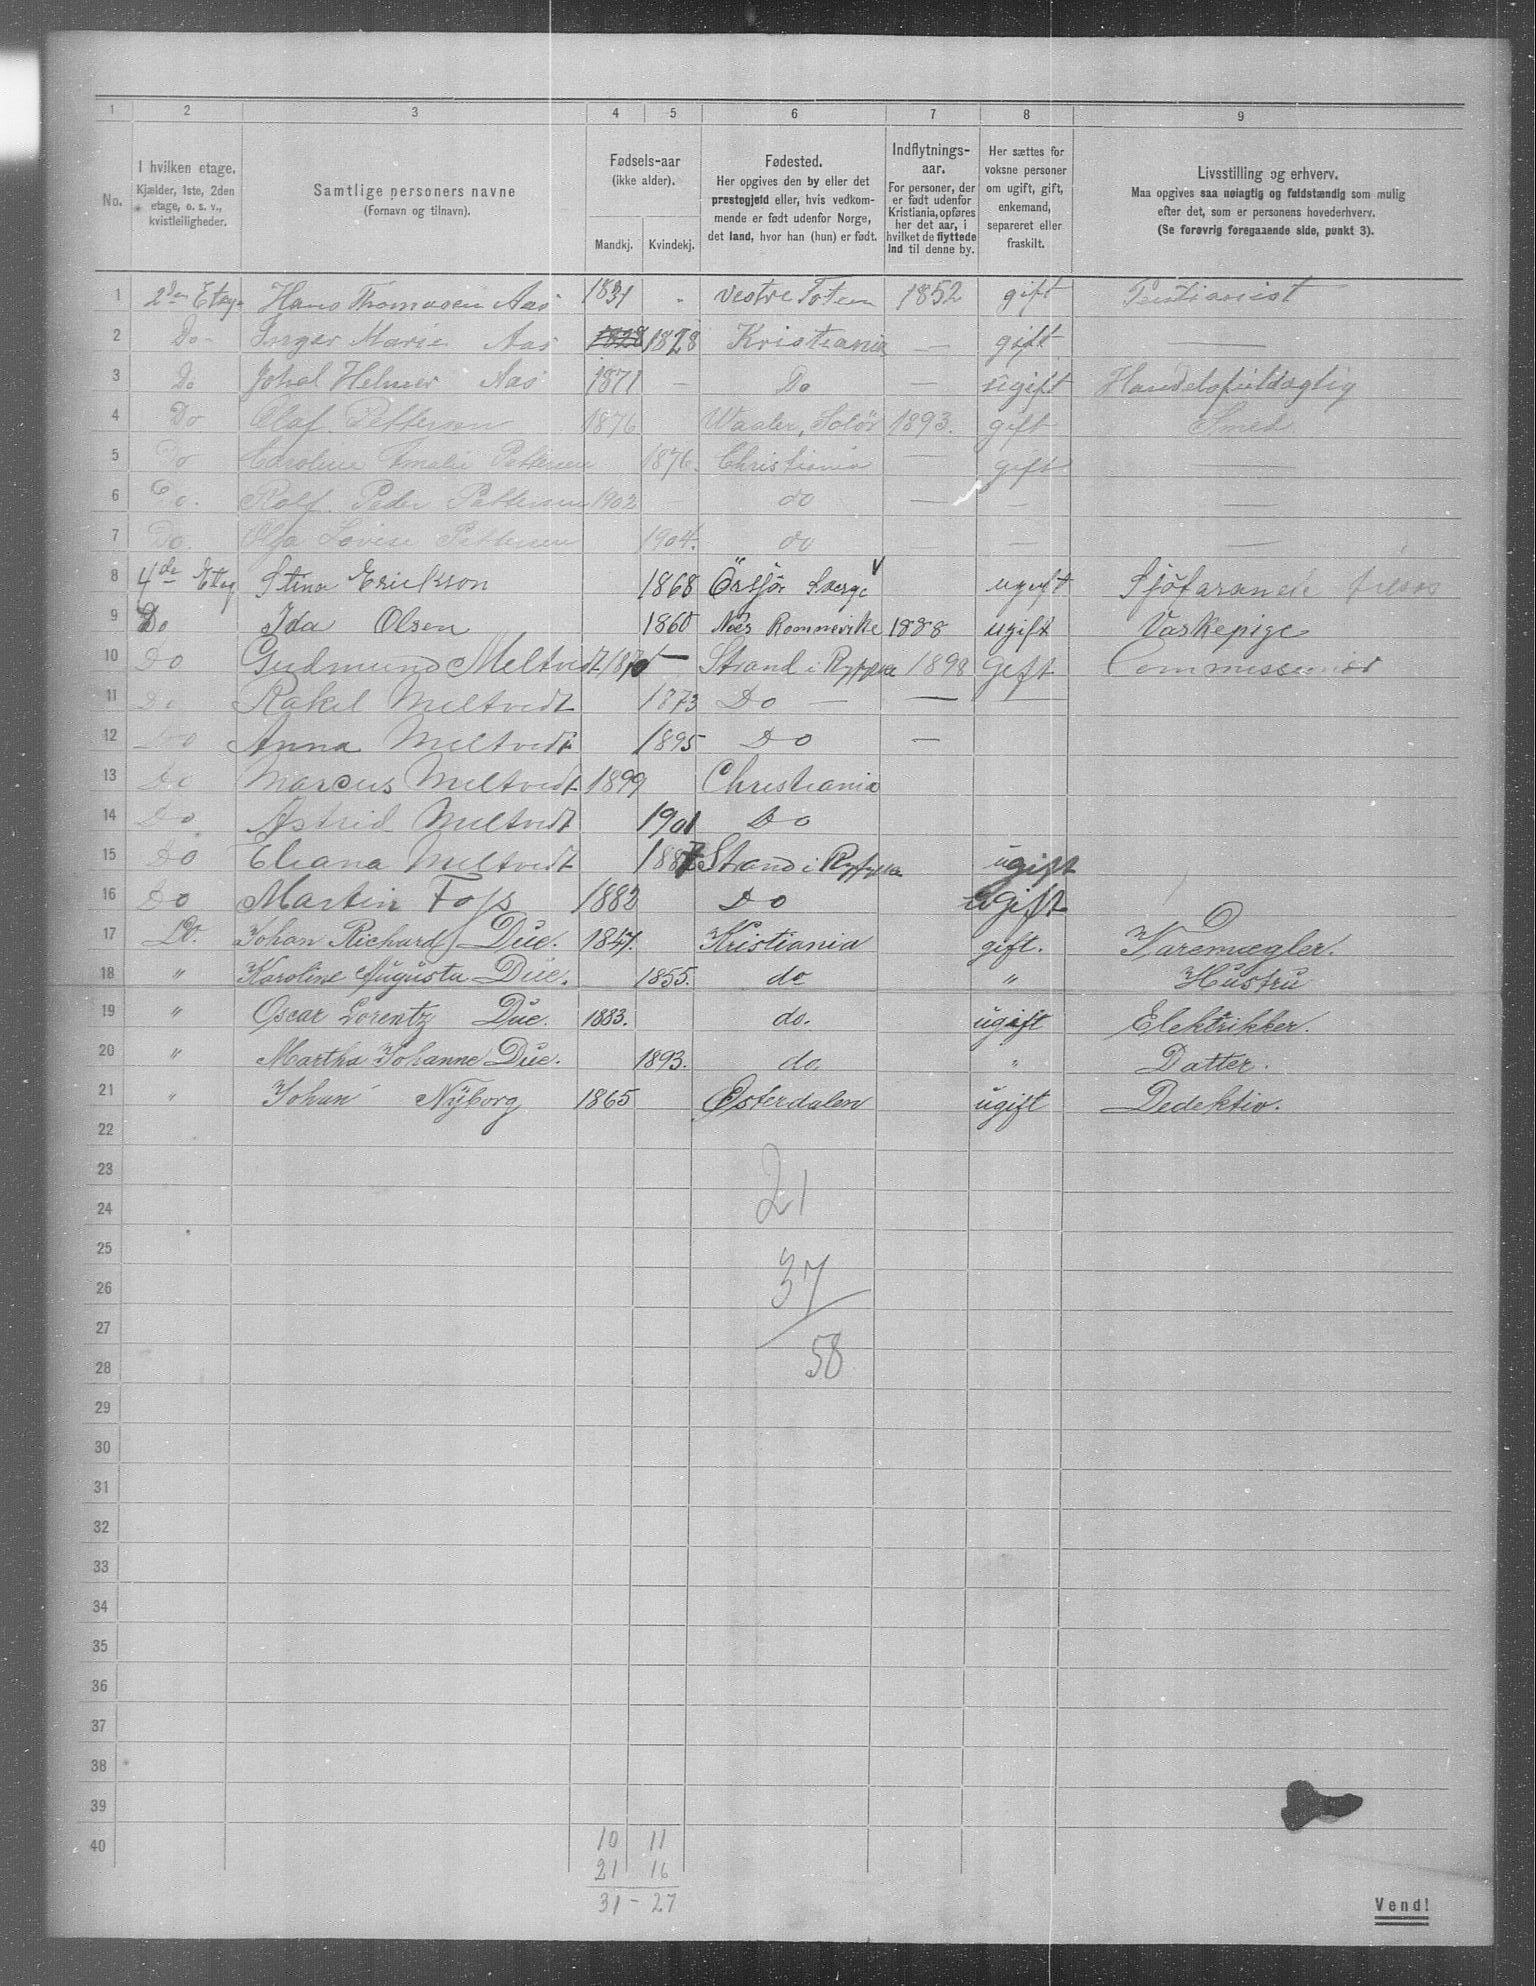 1 2 3 4 5 6 7 8 9
No.
I hvilken etage.
Kjælder, 1ste, 2den
etage, o. s. v.,
kvistleiligheder.
Samtlige personers navne
(Fornavn og tilnavn).
Fødsels-aar
(ikke alder).
Mandkj. Kvindekj.
Fødested.
Her opgives den by eller det
prestegjeld eller, hvis vedkom-
mende er født udenfor Norge,
det land, hvor han (hun) er født.
Indflytnings-
aar.
For personer, der
er født udenfor
Kristiania, opføres
her det aar, i
hvilket de flyttede
ind til denne by.
Her sættes for
voksne personer
om ugift, gift,
enkemand,
separeret eller
fraskilt.
Livsstilling og erhverv.
Maa opgives saa nøiagtig og fuldstændig som mulig
efter det, som er personens hovederhverv.
(Se forøvrig foregaaende side, punkt 3).
1 2den Etage Hans Thomasen Aas 1831 - Vestre Toten 1852 gift Pensionist
2 Do - Inger Marie Aas 1828 1828 Kristiania — gift —
3 Do Johal Helmer Aas 1871 — Do — ugift
4 Do Olaf Pettersen 1876 Waaler, Solör 1893. gift Smed
5 Do Caroline Amalie Pettersen 1876. Christiania — gift —
6 Do. Rolf Peder Pettersen 1902 do — — —
7 Do. Olga Lovise Pettersen 1904. do — —
8 4de Etag Stina Erickson 1868 Örsjör Sverge ugift Sjöfarande
9 Do Ida Olsen 1860 Næs Rommerike 1888 ugift Vaskepige
10 Do Gudmund Meltvedt 1870 — Strand i Ryfylke 1898 Gift Commissionær
11 Do Rakel Meltvedt 1873 Do — —
12 Do Anna Meltvedt 1895 Do —
13 Do Marcus Meltvedt 1899 Christiania
14 Do Astrid Meltvedt 1901 Do
15 Do Eliana Meltvedt 1887 Strand i Ryfylke ugift
16 Do Martin Foss 1882 Do ugift
17 Do. Johan Richard Due. 1847. Kristiania gift. Varemægler.
18 " Karoline Augusta Due. 1855. do " Hustru
19 " Oscar Lorentz Due. 1883. do. ugift Elektrikker.
20 " Martha Johanne Due. 1893. do. " Datter.
21 " Johan Nÿborg 1865 Østerdalen ugift Dedektiv.
22
23 21
24
25
26 37
27
28 58
29
30
31
32
33
34
35
36
37
38
39
40 10 11
21 16
31 - 27
Vend!